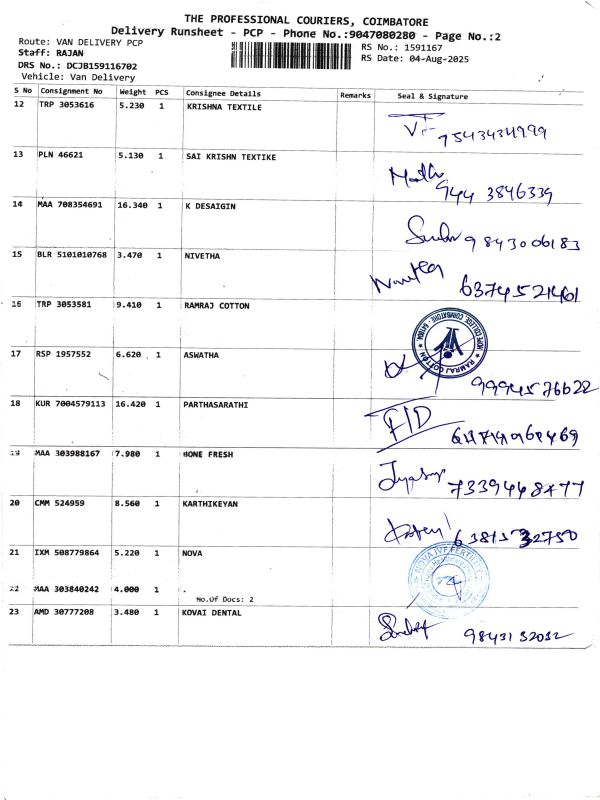 THE PROFESSIONAL COURIERS, COIMBATORE
Delivery Runsheet - PCP - Phone No.:9047080280 - Page No.:2
Route: VAN DELIVERY PCP
RS No.: 1591167
Staff: RAJAN
RS Date: 04-Aug-2025
DRS No.: DCJB159116702
Vehicle: Van Delivery
S No Consignment No Weight PCS Consignee Details Remarks Seal & Signature
12 TRP 3053616 5.230 1 KRISHNA TEXTILE
9543434999
13 PLN 46621 5.130 1 SAI KRISHN TEXTIKE
944 3846339
14 MAA 708354691 16.340 1 K DESAIGIN
9843006183
15 BLR 5101010768 3.470 1 NIVETHA
6374521461
16 TRP 3053581 9.410 1 RAMRAJ COTTON
HOPE COLLEGE, COIMBATORE - 641004.
RAMRAJ COTTON
17 RSP 1957552 6.620 1 ASWATHA
9994576622
18 KUR 7004579113 16.420 1 PARTHASARATHI
F/D
19 MAA 303988167 7.980 1 BONE FRESH
7339448477
20 CMM 524959 8.560 1 KARTHIKEYAN
21 IXM 508779864 5.220 1 NOVA
NOVA IVF FERTILITY
22 MAA 303840242 4.000 1 .
No.Of Docs: 2
23 AMD 30777208 3.480 1 KOVAI DENTAL
9843132032